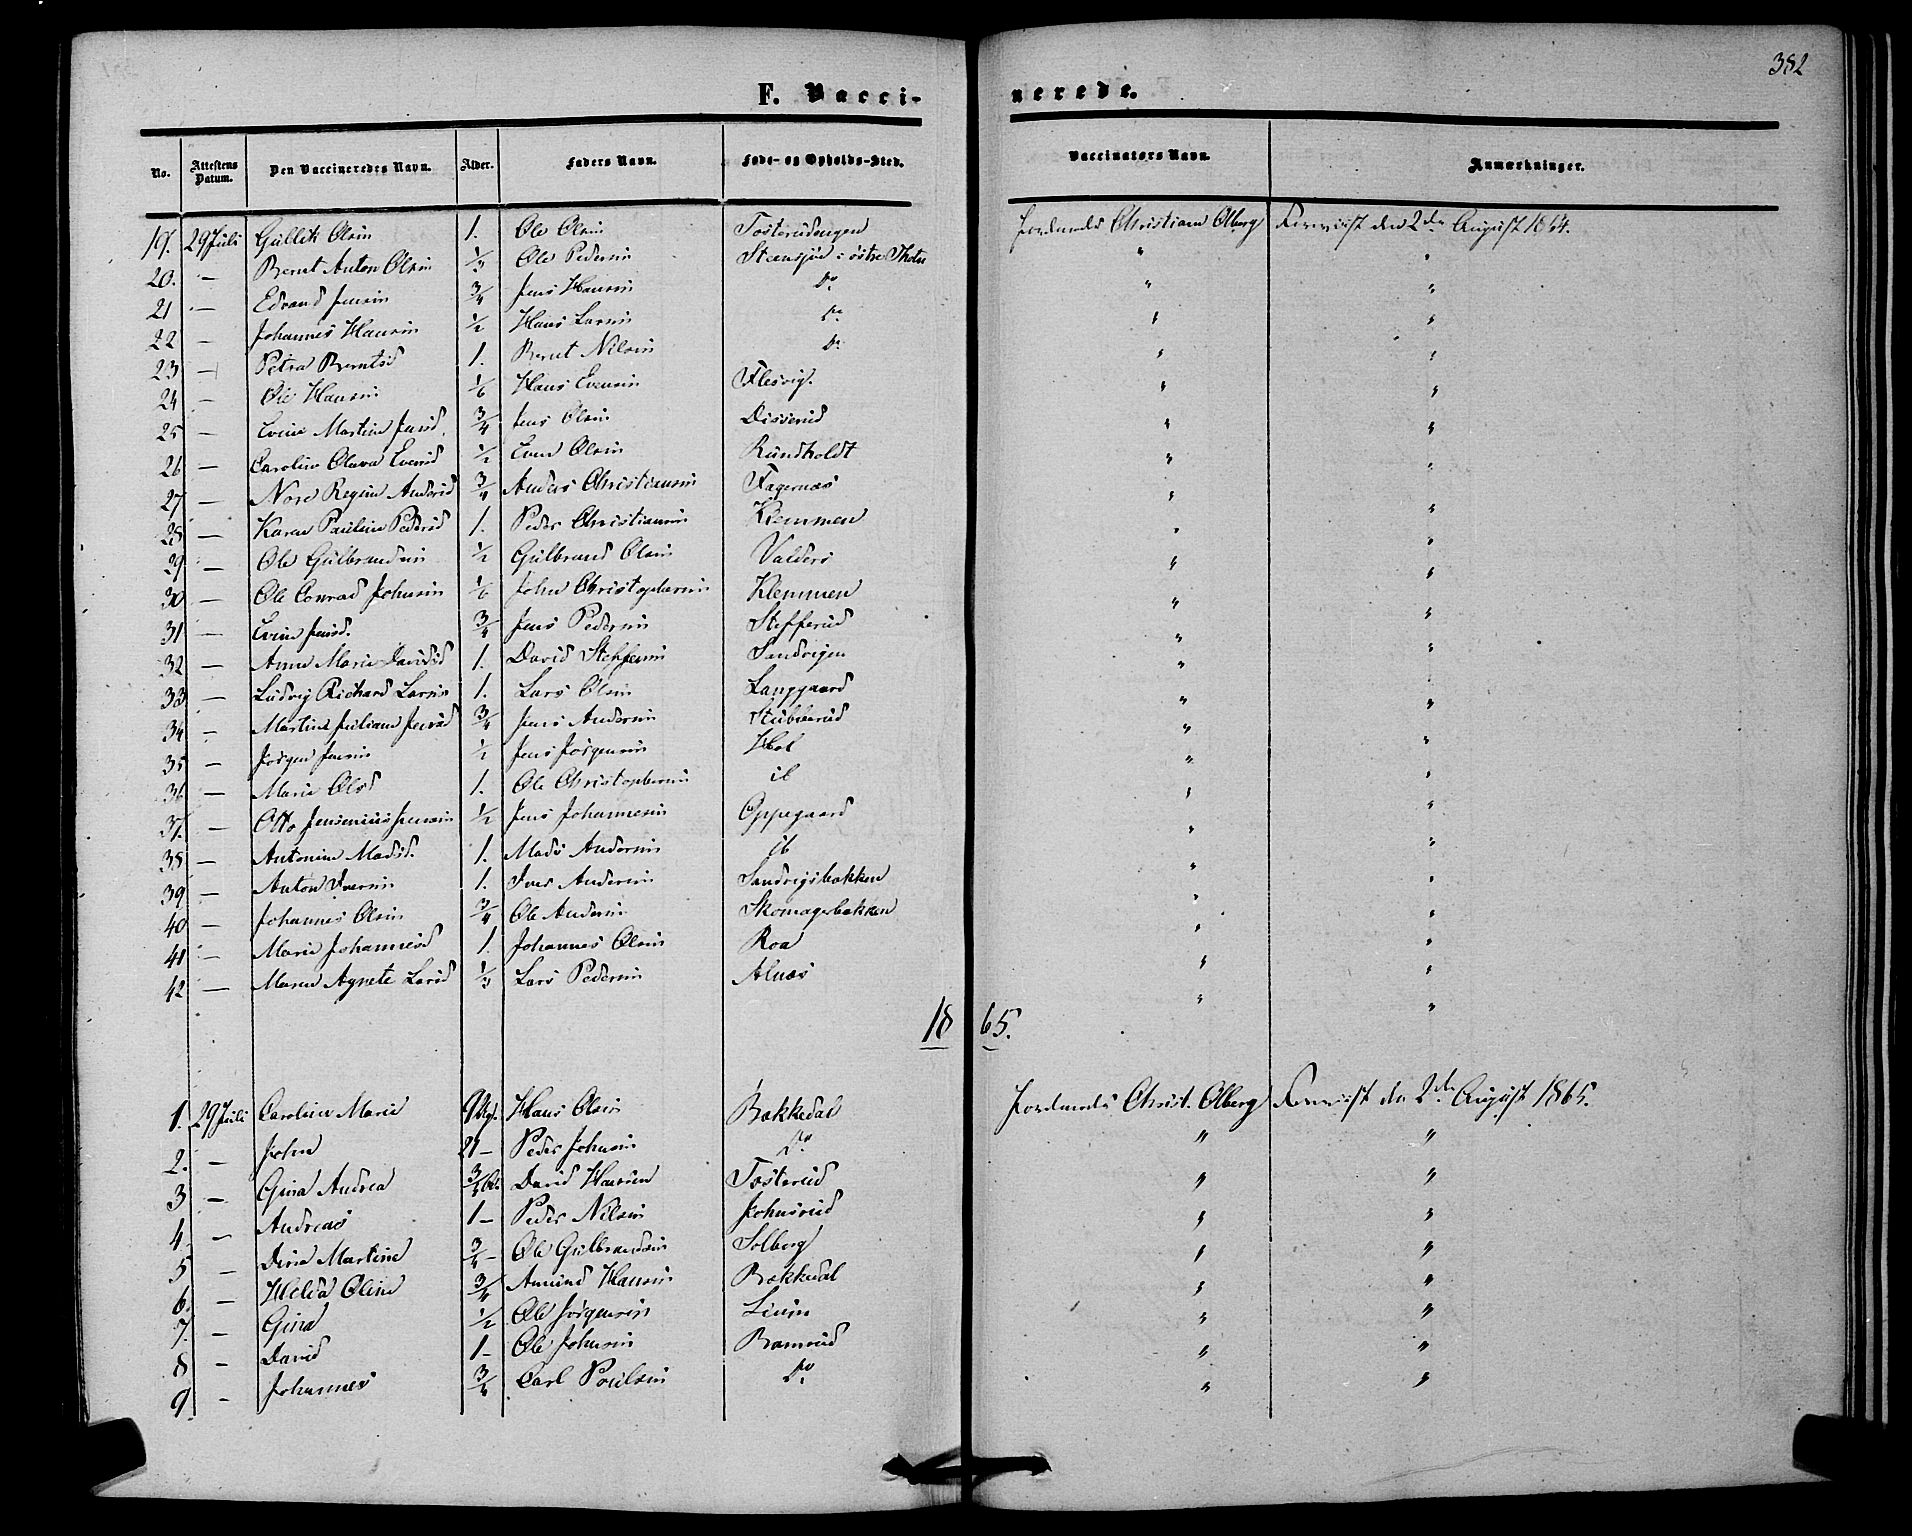 382
F. Vaccinerede.
No. Attestens Datum. Den Vaccineredes Navn. Alder. Faders Navn. Føde- og Opholds-Sted. Vaccinators Navn. Anmærkninger.
19. 29 Juli Gullik Olsen 1. Ole Olsen Tosterudengen Christian Olberg Foreviist den 2den August 1864.
20. — Bernt Anton Olsen 1/3 Ole Pedersen Steensjøe i østre Thoten " "
21 — Edvand Jensen 3/4 Jens Hansen Do " "
22 — Johannes Hansen 1/2 Hans Larsen Do " "
23 — Petra Berntsd 1. Bernt Nilsen Do " "
24 — Ole Hansen 1/6 Hans Evensen Flesvig. " "
25 — Evine Martine Jensd. 3/4 Jens Olsen Disserud " "
26 — Caroline Olava Evensd 1/2 Even Olsen Rundholdt " "
27 — Nore Regine Andersd 3/4 Anders Christiansen Fagernæs " "
28 — Karen Pauline Pedersd 1. Peder Christiansen Klemmen " "
29 — Ole Gulbrandsen 1/2 Gulbrand Olsen Valders " "
30 — Ole Conrad Johnsen 1/6 John Christophersen Klemmen " "
31 — Evine Jensd. 3/4 Jens Pedersen Stefferud " "
32 — Anne Marie Davidsd 1. David Steffensen Sandvigen " "
33 — Ludvig Richard Larsen 1. Lars Olsen Langgaard " "
34 — Martine Juliane Jensd 3/4 Jens Andersen Stubberud " "
35 — Jørgen Jensen 1/2 Jens Jørgensen Hol " "
36 — Marie Olsd 1. Ole Christophersen ib " "
37. — Otto Jensenius Jensen 1/2 Jens Johannesen Oppegaard " "
38 — Antonine Madsd. 1. Mads Andersen ib " "
39 — Anton Iversen 1. Iver Andersen Sandvigsbakken " "
40 — Johannes Olsen 3/4 Ole Andersen Skomagerbakken " "
41 — Marie Johannesd 1. Johannes Olsen Roa " "
42 — Maren Agnete Larsd 1/3 Lars Pedersen Alnæs " "
1865.
1. 29 Juli Caroline Marie 9 Hans Olsen Bakkedal Christ. Olberg Foreviist den 2den August 1865.
2. — John 21 — Peder Johnsen Do " "
3 — Gina Andrea 3/4 David Hansen Tosterud " "
4 — Andreas 1 — Peder Nilsen Johnsrud " "
5 — Dina Martine 3/4 — Ole Gulbrandsen Solberg " "
6. — Helda Oline 3/4 Amund Hansen Bakkedal " "
7. — Gina 1/2 Ole Jørgensen Liuin " "
8 — David 1 — Ole Johnsen Ramsrud " "
9 — Johannes 3/4 Carl Poulsen Do " "